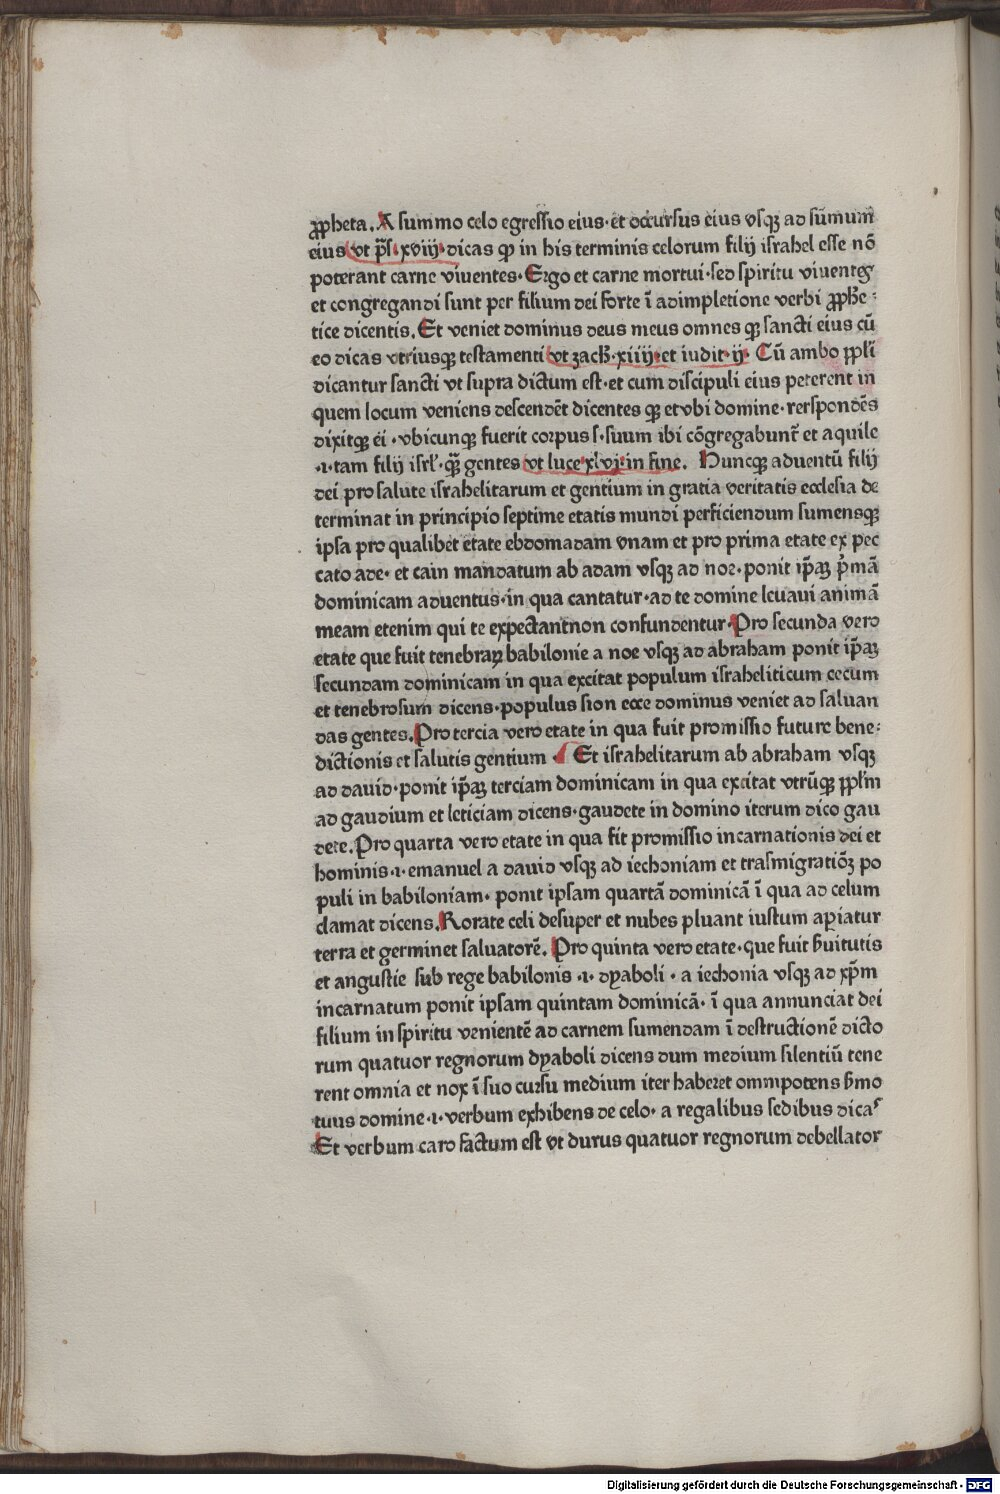 ꝓpheta. A summo celo egressio eius· et occursus eius vsqꝫ ad sūmum
eius vt p̄s· xviij· dicas ꝙ in his terminis celorum filij israhel esse nō
poterant carne viuentes· Ergo et carne mortui· sed spiritu viuentes
et congregandi sunt per filium dei forte ī adimpletione verbi ꝓph̄e⸗
tice dicentis. Et veniet dominus deus meus omnes qꝫ sancti eius cū
eo dicas vtriusqꝫ testamenti vt zach̄· xiiij· et iudit· ij· Cū ambo ppl̄i
dicantur sancti vt supra dictum est· et cum discipuli eius peterent in
quem locum veniens descendēt dicentes qꝫ et vbi domine· rerspondēs
dixitqꝫ ei · vbicunqꝫ fuerit corpus s· suum ibi cōgregabunt̄ et aquile
·i· tam filij isrl̄· qꝫ̄ gentes vt luce· xlvj· in fine. Huncqꝫ aduentū filij
dei pro salute israhelitarum et gentium in gratia veritatis ecclesia de
terminat in principio septime etatis mundi perficiendum sumensqꝫ
ipsa pro qualibet etate ebdomadam vnam et pro prima etate ex pec
cato ade· et cain mandatum ab adam vsqꝫ ad noe· ponit ip̄aꝫ p̄mā
dominicam aduentus· in qua cantatur· ad te domine leuaui animā
meam etenim qui te expectant non confundentur· Pro secunda vero
etate que fuit tenebraꝝ babilonie a noe vsqꝫ ad abraham ponit ip̄aꝫ
secundam dominicam in qua excitat populum israheliticum cecum
et tenebrosum dicens· populus sion ecce dominus veniet ad saluan
das gentes. Pro tercia vero etate in qua fuit promissio future bene⸗
dictionis et salutis gentium · Et israhelitarum ab abraham vsqꝫ
ad dauid· ponit ip̄aꝫ terciam dominicam in qua excitat vtrūqꝫ ppl̄m
ad gaudium et leticiam dicens· gaudete in domino iterum dico gau
dete. Pro quarta vero etate in qua fit promissio incarnationis dei et
hominis ·i· emanuel a dauid vsqꝫ ad iechoniam et trasmigratiōꝫ po
puli in babiloniam· ponit ipsam quartā dominicā ī qua ad celum
clamat dicens. Rorate celi desuper et nubes pluant iustum aꝑiatur
terra et germinet saluatorē. Pro quinta vero etate· que fuit s̄uitutis
et angustie sub rege babilonis ·i· dyaboli · a iechonia vsqꝫ ad xp̄m
incarnatum ponit ipsam quintam dominicā· ī qua annunciat dei
filium in spiritu venientē ad carnem sumendam ī destructionē dicto
rum quatuor regnorum dyaboli dicens dum medium silentiū tene
rent omnia et nox ī suo cursu medium iter haberet omnipotens s̄mo
tuus domine ·i· verbum exhibens de celo· a regalibus sedibus dicaˢ
Et verbum caro factum est vt durus quatuor regnorum debellator
Digitalisierung gefördert durch die Deutsche Forschungsgemeinschaft - DFG